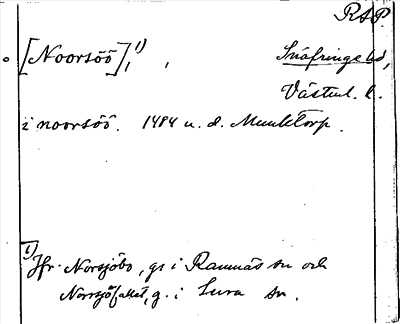 RAP.
[Noorsöö], 1) , Snäfringe hd,
Västml. l.
i noorsöö. 1484 u. d. Munktorp.
1) Jfr. Norsjöbo, gs i Ramnäs sn och
Norrsjöfallet, g. i Sura sn.